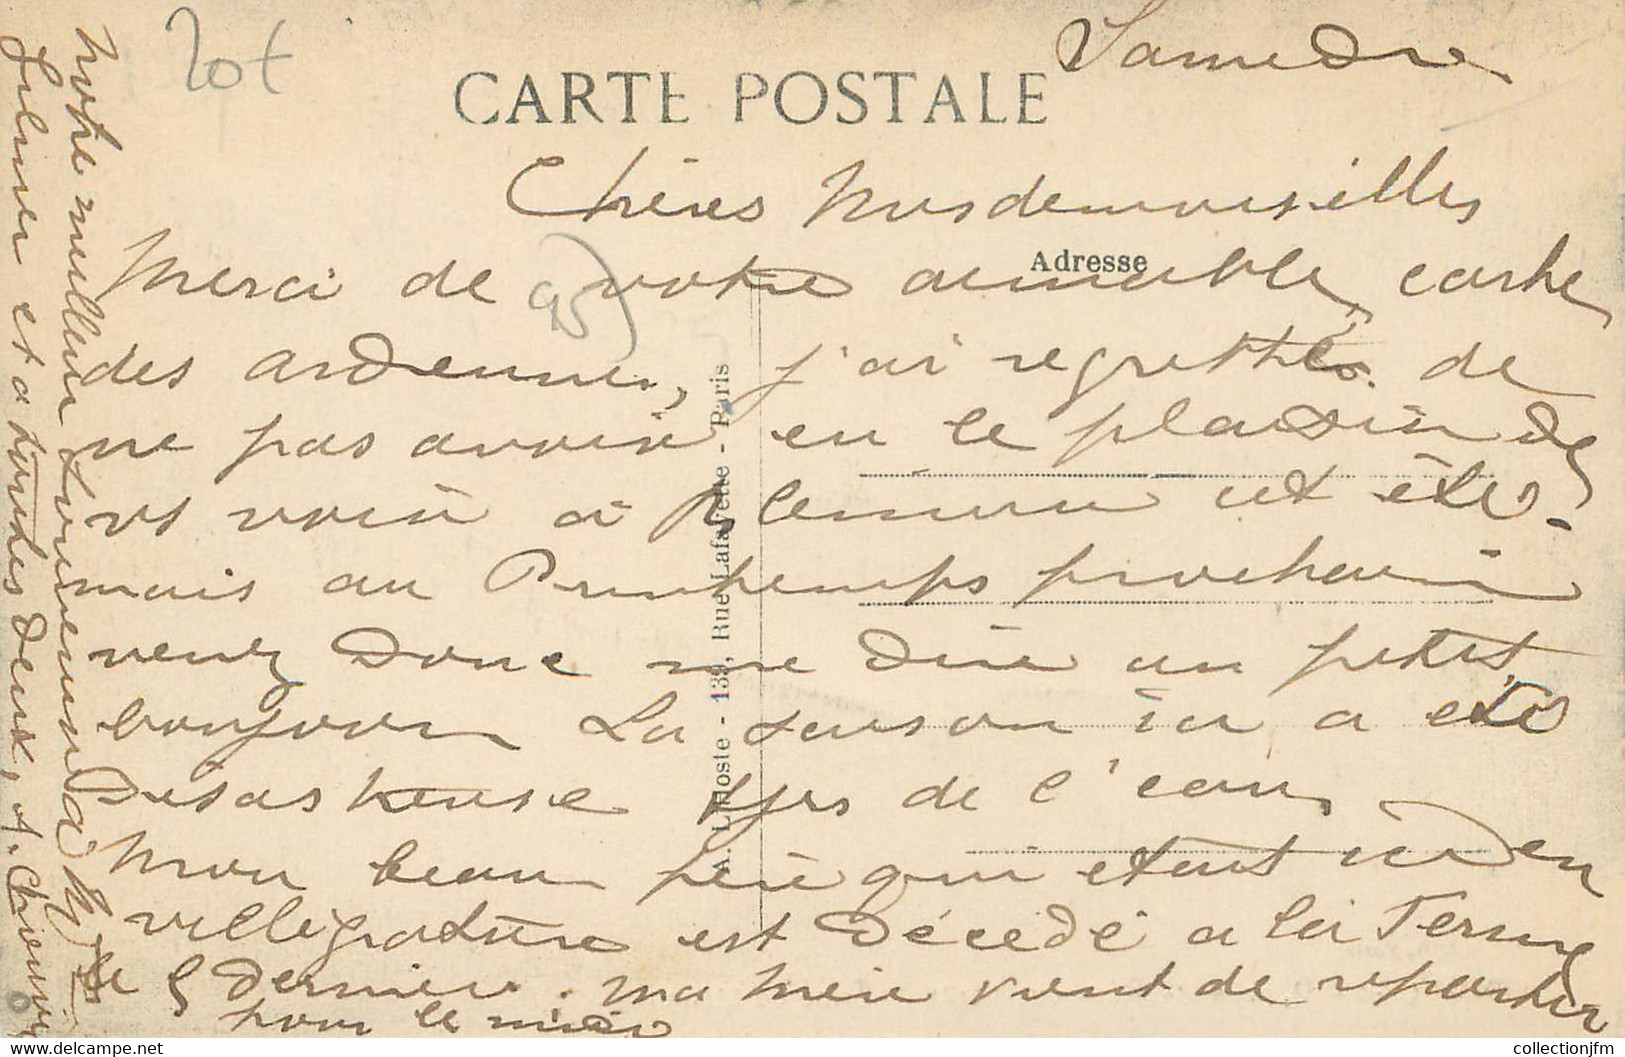 Samedi
lot
CARTE POSTALE
Chères Mesdemoiselles
Adresse
Merci de votre aimable carte
des Ardennes, j'ai regretté de
ne pas avoir eu le plaisir de
vs voir à cet été.
mais au Printemps prochain
venez donc me dire un petit
bonjour La saison ici a été
Désastreuse tjrs de l'eau,
Mon beau père qui était ici en
villégiature est décédé à la
le 5 dernier. ma mère vient de repartir
pour le
Notre meilleur souvenir à
et à toutes deux, A.
A. L'Hoste - 139, Rue Lafayette - Paris
collectionjfm